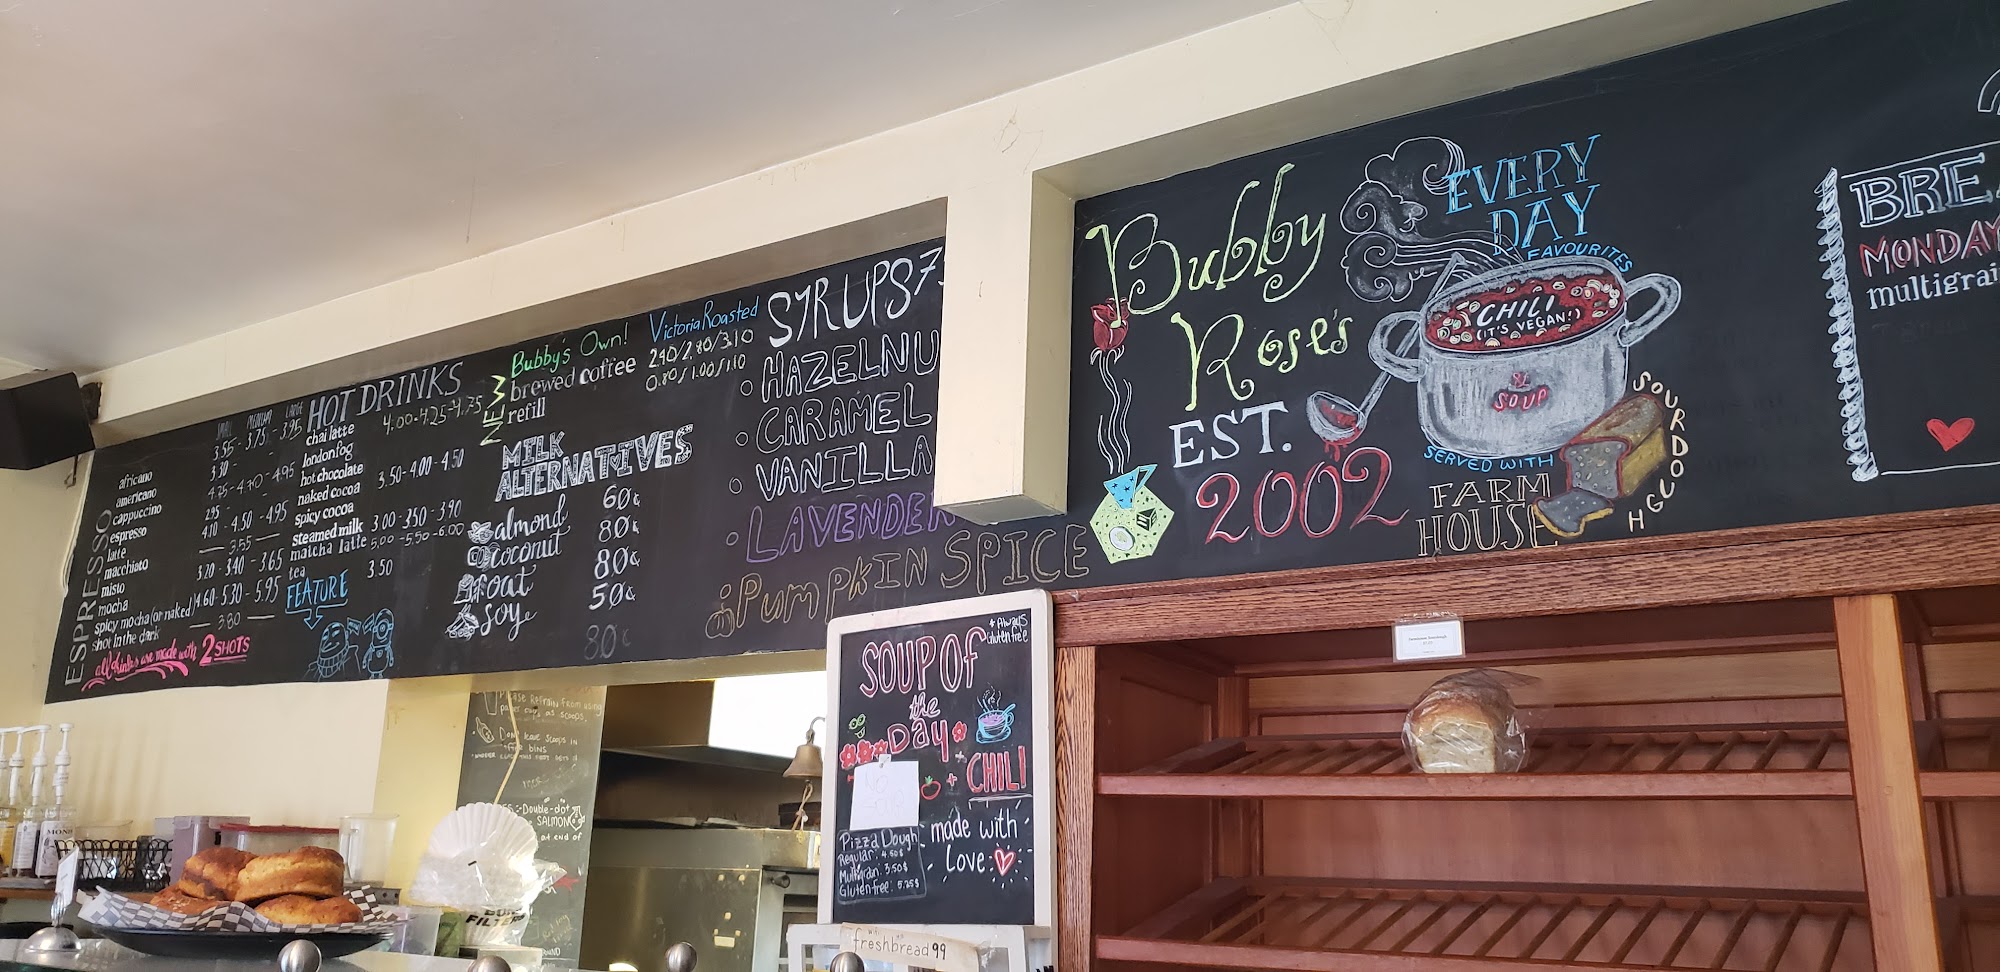 ESPRESSO
SMALL MEDIUM LARGE
africano 3.55 - 3.75 - 3.95
americano 3.30 -
cappuccino 4.75 - 4.70 - 4.95
espresso 2.95
latte 4.10 - 4.50 - 4.95
macchiato 3.55
misto 3.20 - 3.40 - 3.65
mocha
spicy mocha (or naked) 4.60 - 5.30 - 5.95
shot in the dark 3.80
all drinks are made with 2 SHOTS
HOT DRINKS
chai latte 4.00 - 4.25 - 4.75
london fog
hot chocolate
naked cocoa 3.50 - 4.00 - 4.50
spicy cocoa
steamed milk 3.00 - 3.50 - 3.90
matcha latte 5.00 - 5.50 - 6.00
tea 3.50
FEATURE
NEW
Bubby's Own! Victoria Roasted
brewed coffee 2.40/2.80/3.10
refill 0.80/1.00/1.10
MILK
ALTERNATIVES
almond 60¢
coconut 80¢
oat 80¢
soy 50¢
80¢
SYRUPS 7
HAZELNU
CARAMEL
VANILLA
LAVENDER
PUMPKIN SPICE
Bubby
Rose's
EST.
2002
EVERY
DAY
FAVOURITES
CHILI
(IT'S VEGAN!)
&
SOUP
SERVED WITH
FARM
HOUSE
SOURDOUGH
BRE
MONDAY
multigrai
SOUP OF
the
Day
+ Always
gluten free
+ CHILI
NO
SOUP
made with
love:
Pizza Dough
Regular: 4.50$
Multigrain: 3.50$
Gluten-free: 5.25$
wifi
freshbread99
Please refrain from using
paper cups as scoops.
Don't leave scoops in
bins
Double-dot
SALMON
at end of
FILTER
MONI